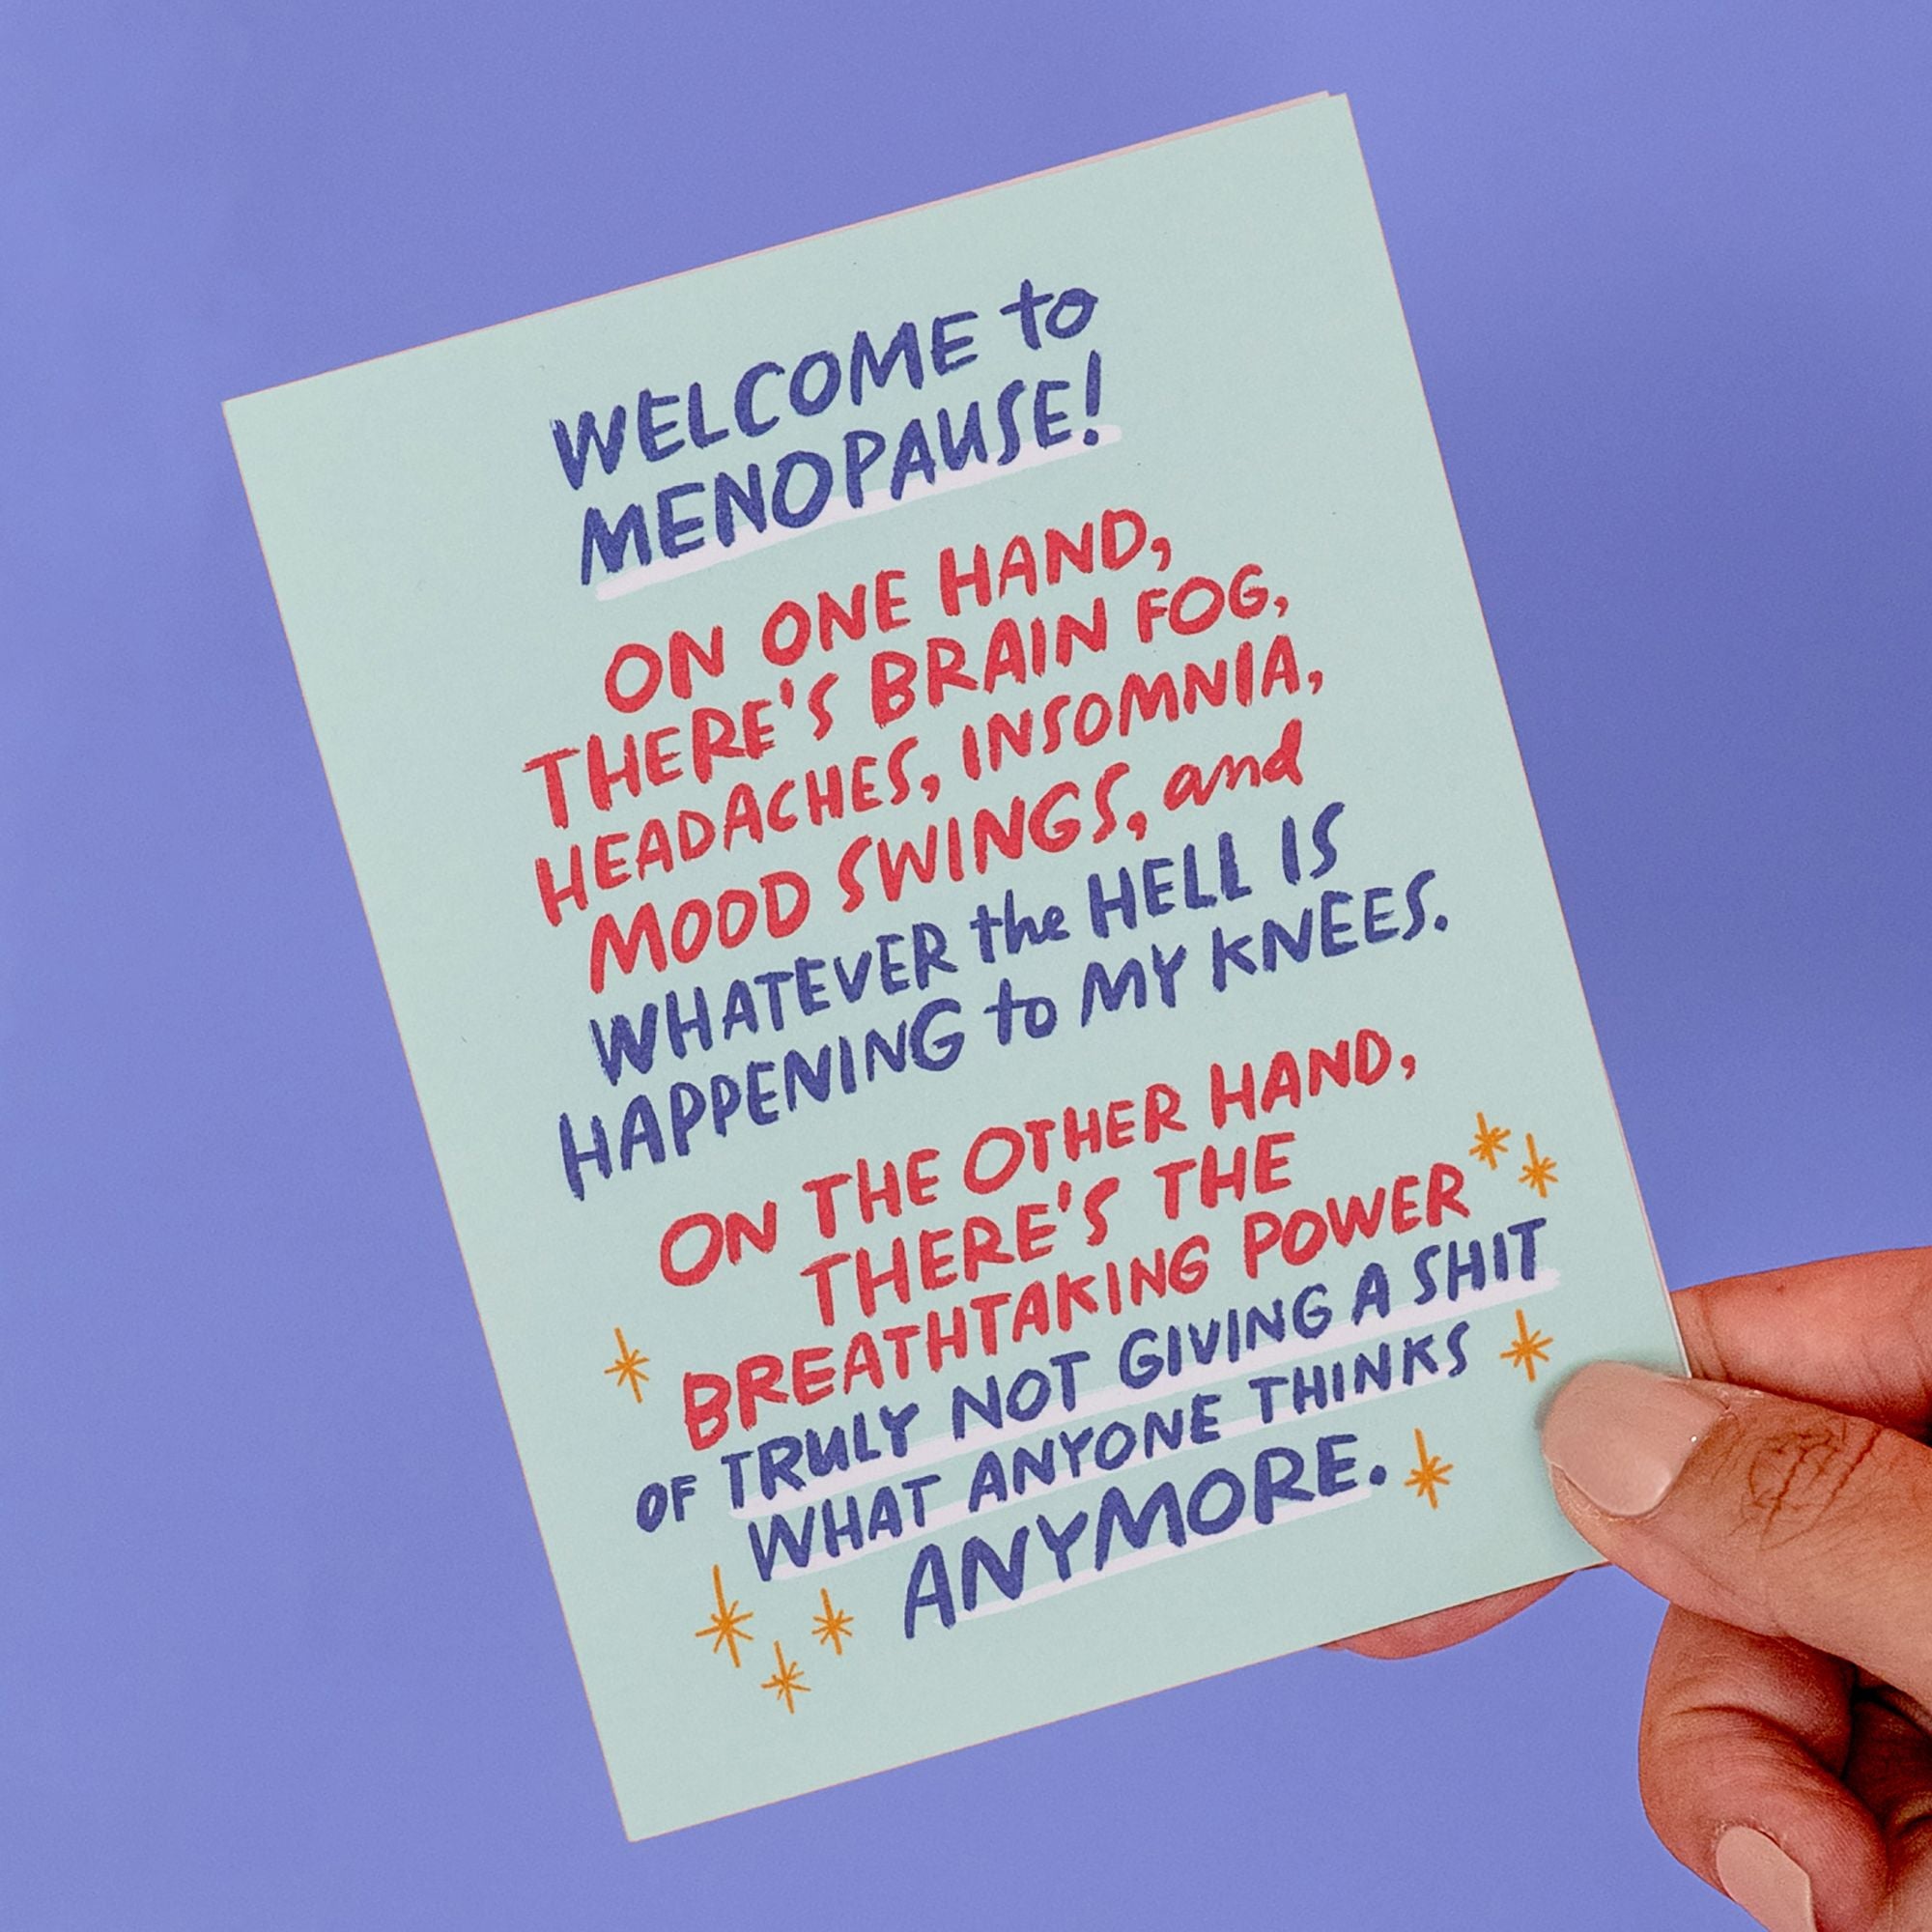 WELCOME to
MENOPAUSE!
ON ONE HAND,
THERE'S BRAIN FOG,
HEADACHES, INSOMNIA,
MOOD SWINGS, and
WHATEVER the HELL IS
HAPPENING to MY KNEES.
ON THE OTHER HAND,
THERE'S THE
BREATHTAKING POWER
OF TRULY NOT GIVING A SHIT
WHAT ANYONE THINKS
ANYMORE.